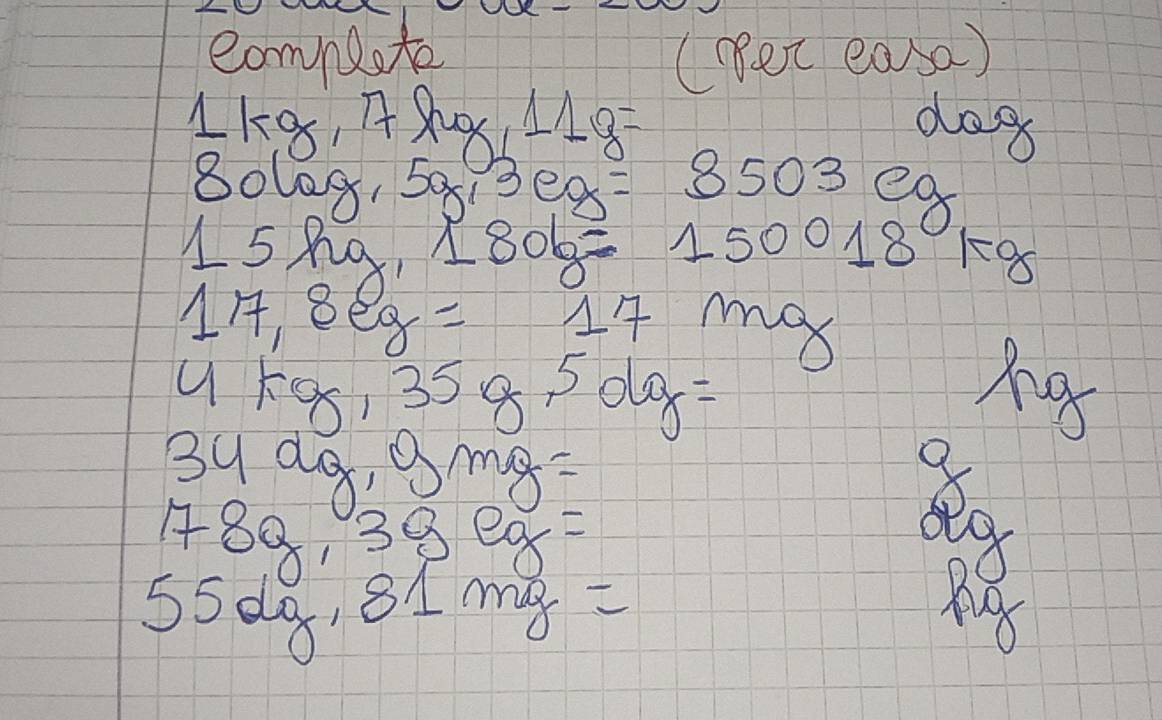 Completa (Per casa)
1 kg, 7 hg, 11g= dag
8dag, 5g, 3cg= 8503 cg
15hg, 18dg= 150018 kg
17, 8cg= 17 mg
4 kg, 35 g, 5 dg= hg
34 dg, 9mg= g
78g, 39 cg= dg
55dg, 81 mg = hg